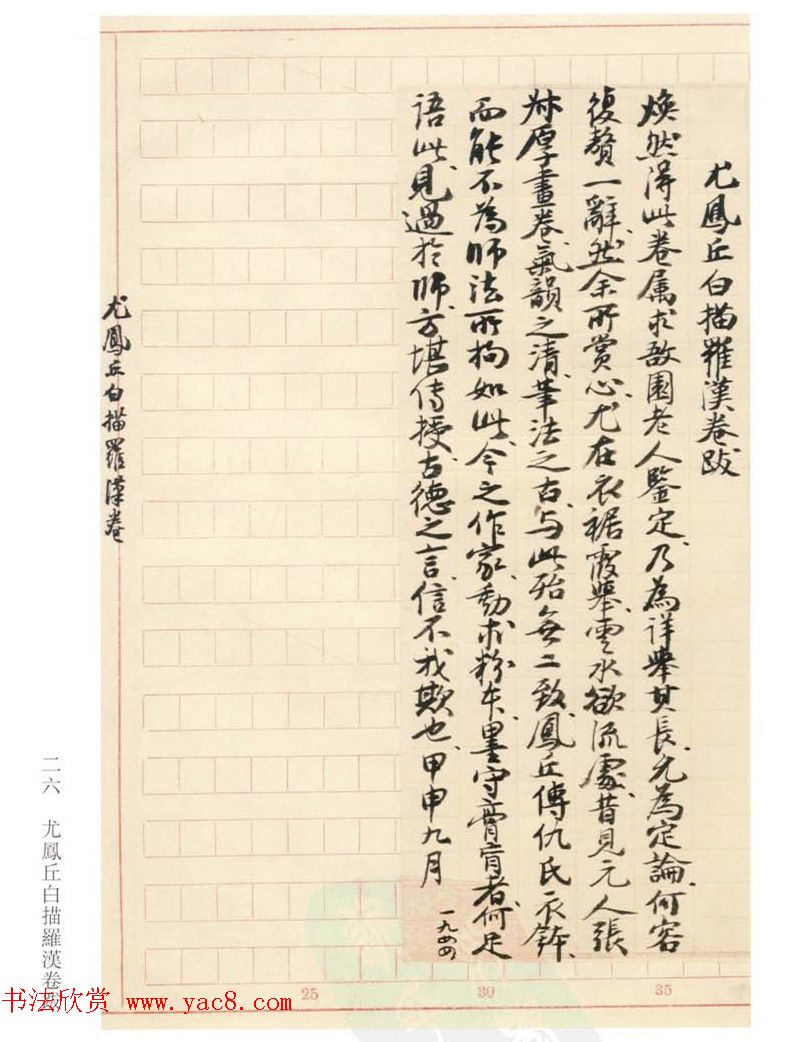 尤鳳丘白描羅漢卷跋
煥然得此卷属求敔園老人鑒定乃為詳舉其長允為定論何容
復贅一辭然余所賞心尤在衣裾霞舉雲水欲流處昔見元人張
叔厚畫卷氣韻之清筆法之古与此殆無二致鳳丘傳仇氏衣鉢
而能不為師法所拘如此今之作家動求粉本墨守膏肓者何足
語此見過於師方堪傳授古德之言信不我欺也甲申九月
一九四四
尤鳳丘白描羅漢卷
二六 尤鳳丘白描羅漢卷跋
25 30 35
书法欣赏 www.yac8.com